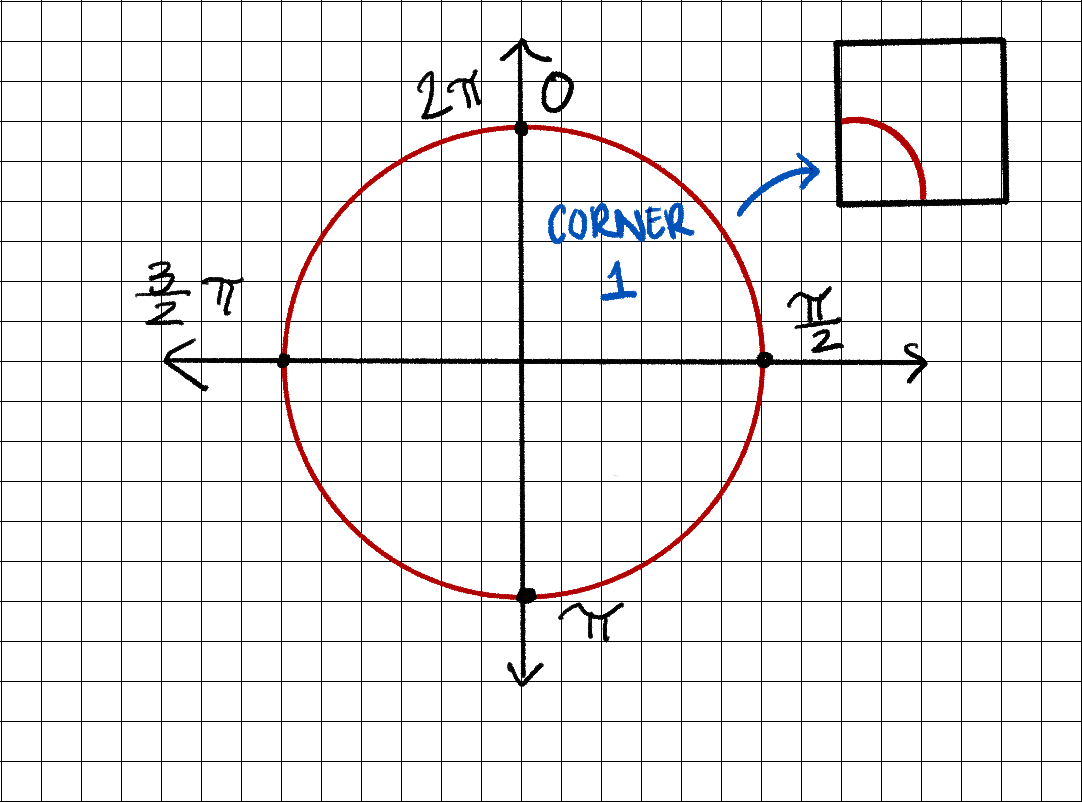 2π 0
CORNER
1
3/2 π
π/2
π